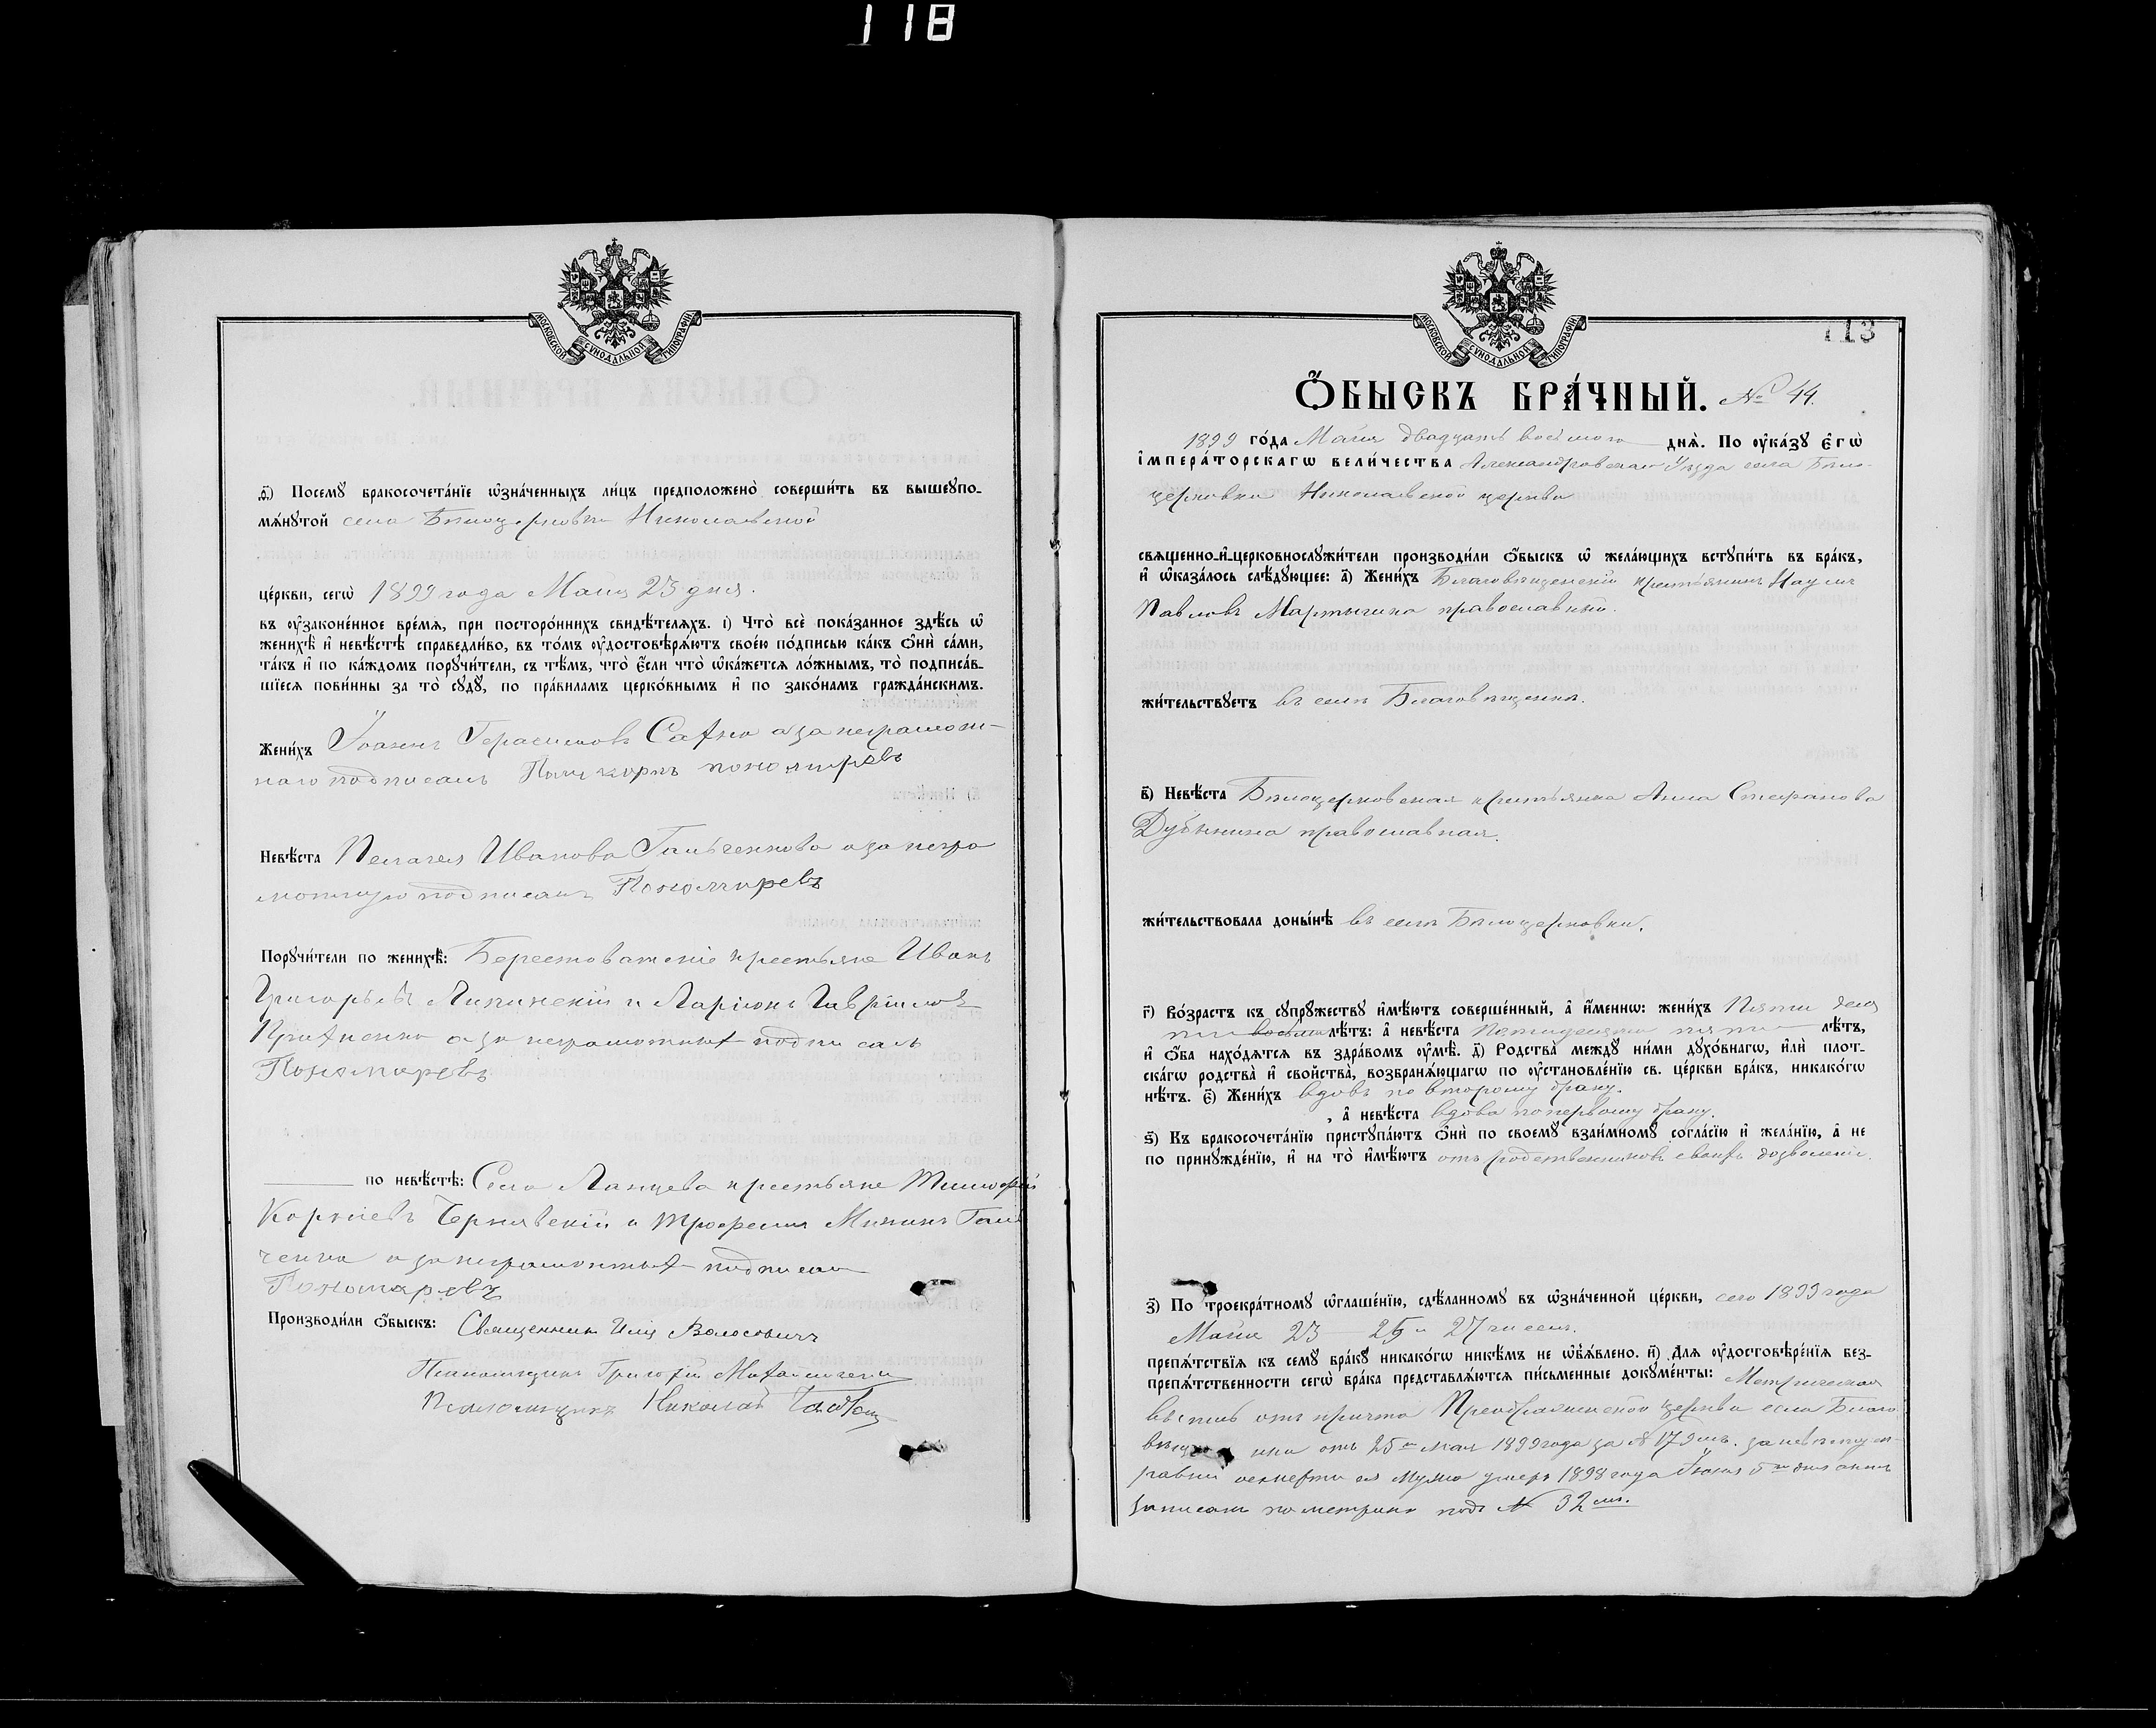 118
МОСКОВСКОЙ СѴНОДАЛЬНОЙ ТИПОГРАФІИ
ѳ҃) Посемꙋ бракосочета́нїе ѡ҆зна́ченныхъ ли́цъ предположено̀ соверши́ть въ вышеꙋпо-
мѧ́нꙋтой села Бѣлоцерковки Николаевской
це́ркви, сегѡ̀ 1899 года Мая 23 дня.
въ ᲂу҆зако́ненное вре́мѧ, при посторо́ннихъ свидѣ́телѧхъ. і҃) Что̀ всѐ пока́занное здѣ́сь ѡ҆
женихѣ̀ и҆ невѣ́стѣ справедли́во, въ то́мъ ᲂу҆достовѣрѧ́ютъ свое́ю по́дписью ка́къ ѻ҆нѝ са́ми,
та́къ и҆ по ка́ждомъ порꙋчи́тели, съ тѣ́мъ, что̀ є҆́сли что̀ ѡ҆ка́жетсѧ ло́жнымъ, то̀ подписа́в-
шїесѧ пови́нны за то̀ сꙋдꙋ̀, по пра́виламъ церко́внымъ и҆ по зако́намъ гражда́нскимъ.
Жени́хъ Іоаннъ Герасимовъ Сахно а за неграмот-
наго подписалъ Поликарпъ пономаревъ
Невѣ́ста Пелагея Иванова Гальченкова а за негра
мотную подписалъ Пономаревъ
Порꙋчи́тели по женихѣ̀: Берестоватскіе крестьяне Иванъ
Григорьевъ Липинскій и Ларіонъ Гавріиловъ
а за неграмотныхъ подписалъ
Пономаревъ
по невѣ́стѣ: Села Ланцева крестьяне Тимофей
Корніевъ Чернявскій и Трофимъ Мининъ Галь
ченко а за неграмотныхъ подписалъ
Пономаревъ
Производи́ли ѻ҆́быскъ: Священникъ Илія Волосовичъ
Псаломщикъ Григорій
Псаломщикъ Николай
МОСКОВСКОЙ СѴНОДАЛЬНОЙ ТИПОГРАФІИ
113
Ѻ҆́БЫСКЪ БРА́ЧНЫЙ. № 44.
1899 го́да Мая двадцать восьмого днѧ̀. По ᲂу҆ка́зꙋ є҆гѡ̀
і҆мпера́торскагѡ вели́чества Александровскаго Уѣзда села Бѣло-
церковки Николаевской церкви
свѧщенно-и҆-церковнослꙋжи́тели производи́ли ѻ҆́быскъ ѡ҆ жела́ющихъ встꙋпи́ть въ бра́къ,
и҆ ѡ҆каза́лось слѣ́дꙋющее: а҃) Жени́хъ Благовѣщенскій крестьянинъ Наумъ
Павловъ Мартыгина православный.
жи́тельствꙋетъ въ селѣ Благовѣщенкѣ.
в҃) Невѣ́ста Бѣлоцерковская крестьянка Анна Стефанова
Дубинина православная.
жи́тельствовала доны́нѣ въ селѣ Бѣлоцерковки.
г҃) Во́зрастъ къ сꙋпрꙋ́жествꙋ и҆мѣ́ютъ соверше́нный, а҆ и҆́меннѡ: жени́хъ Пяти деся
ти лѣ́тъ: а҆ невѣ́ста Пятидесяти пяти лѣ́тъ,
и҆ ѻ҆́ба нахо́дѧтсѧ въ здра́вомъ ᲂу҆мѣ̀. д҃) Родства̀ междꙋ̀ ни́ми дꙋхо́внагѡ, и҆лѝ плот-
ска́гѡ родства̀ и҆ сво́йства̀, возбранѧ́ющагѡ по ᲂу҆становле́нїю св. це́ркви бра́къ, никако́гѡ
нѣ́тъ. є҃) Жени́хъ вдовъ по второму браку.
, а҆ невѣ́ста вдова по первому браку.
ѕ҃) Къ бракосочета́нїю пристꙋпа́ютъ ѻ҆нѝ по своемꙋ̀ взаи́мномꙋ согла́сїю и҆ жела́нїю, а҆ не
по принꙋжде́нїю, и҆ на то̀ и҆мѣ́ютъ отъ родственниковъ своихъ дозволеніе.
з҃) По троекра́тномꙋ ѡ҆глаше́нїю, сдѣ́ланномꙋ въ ѡ҆зна́ченной це́ркви, сего 1899 года
Мая 23 25 и 27 чиселъ.
препѧ́тствїѧ къ семꙋ̀ бра́кꙋ никако́гѡ никѣ́мъ не ѡ҆б̾ѧ́влено. и҃) Длѧ ᲂу҆достовѣре́нїѧ без-
препѧ́тственности сегѡ̀ бра́ка представлѧ́ютсѧ пи́сьменные докꙋме́нты: Метрическая
выпись отъ причта Преображенской церкви села Благо
вѣщенки отъ 25го мая 1899 года за № 179мъ.
мужъ умеръ 1898 года 5го дня
записанъ по метрикѣ подъ № 32мъ.